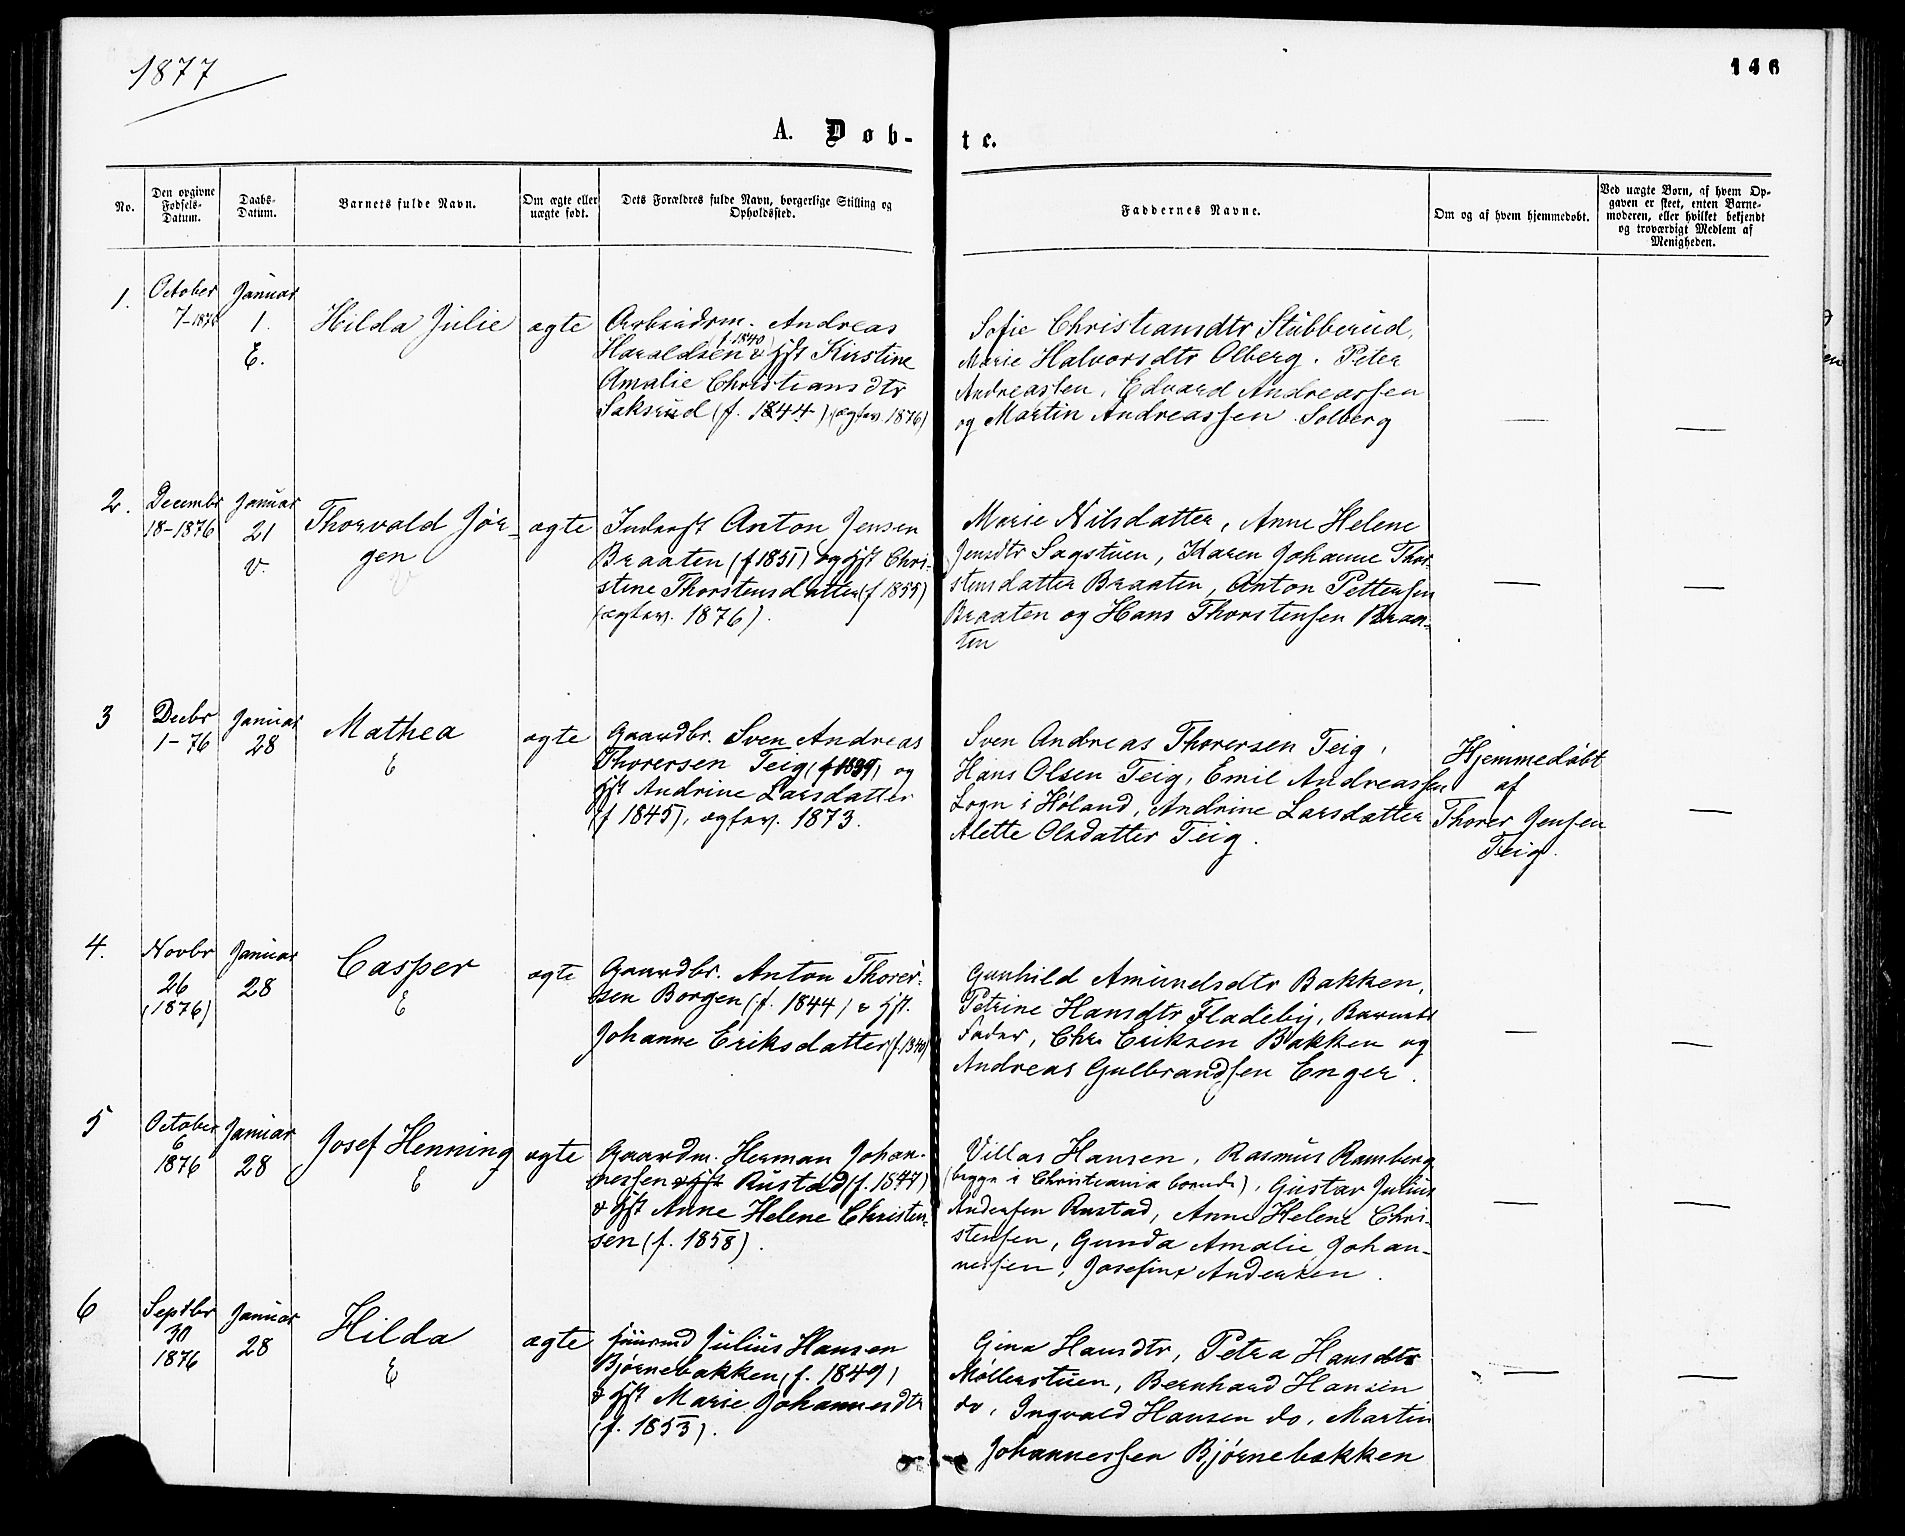 1877
146
A. Døb-
te.
No.
Den opgivne
Fødsels-
Datum.
Daabs-
Datum.
Barnets fulde Navn.
Om ægte eller
uægte født.
Dets Forældres fulde Navn, borgerlige Stilling og
Opholdssted.
Faddernes Navne.
Om og af hvem hjemmedøbt.
Ved uægte Børn, af hvem Op-
gaven er skeet, enten Barne-
moderen, eller hvilket bekjendt
og troværdigt Medlem af
Menigheden.
1.
October
7-1876
Januar
1.
E.
Hilda Julie
ægte
Arbeidsm. Andreas
f. 1840)
Haraldsen & Hst Kirstine
Amalie Christiansdtr
Saksrud (f. 1844) (ægtev. 1876)
Sofie Christiansdtr Stubberud,
Marie Halvorsdtr Olberg. Peter
Andreassen, Edvard Andreassen
og Martin Andreassen Solberg
—
—
2.
Decembr
18-1876
Januar
21
v.
Thorvald Jør-
gen
ægte
Inderst Anton Jensen
Braaten (f 1851) og Hst Chri-
stine Thorstensdatter (f 1855)
(ægtev. 1876).
Marie Nilsdatter, Anne Helene
Jensdtr Sagstuen, Karen Johanne Thor-
stensdatter Braaten, Anton Pettersen
Braaten og Hans Thorstensen Braa-
ten
—
—
3
Decbr
1-76
Januar
28
Mathea
E
ægte
Gaardbr. Sven Andreas
Thorersen Teig, (f 1839) og
Hst Andrine Larsdatter
(f 1845), ægtev. 1873.
Sven Andreas Thorersen Teig,
Hans Olsen Teig, Emil Andreassen
Sogn i Høland, Andrine Larsdatter
Alette Olsdatter Teig.
Hjemmedøbt
af
Thorer Jensen
Teig.
—
4.
Novbr
26
(1876)
Januar
28
Casper
E
ægte
Gaardbr. Anton Thorer-
sen Borgen (f. 1844) & Hst.
Johanne Eriksdatter (f. 1840)
Gunhild Amundsdtr Bakken,
Petrine Hansdtr Fladeby, Barnets
Fader, Chr. Eriksen Bakken og
Andreas Gulbrandsen Enger.
—
—
5
October
6
1876
Januar
28
Josef Henning
E
ægte
Gaardm. Herman Johan-
nessen & Hst Rustad (f. 1847)
& Hst Anne Helene Christen-
sen (f. 1858).
Villas Hansen, Rasmus Ramberg
(begge i Christiania boende), Gustav Julius
Andersen Rustad, Anne Helene Chri-
stensen, Gunda Amalie Johan-
nessen, Josefine Andersen.
—
—
6
Septbr
30
1876
Januar
28
Hilda
E
ægte
Huusmd Julius Hansen
Bjørnebakken (f. 1849)
& Hst Marie Johannesdtr
(f. 1853).
Gina Hansdtr, Petra Hansdtr
Møllerstuen, Bernhard Hansen
do, Ingvald Hansen do, Martin
Johannessen Bjørnebakken
—
—